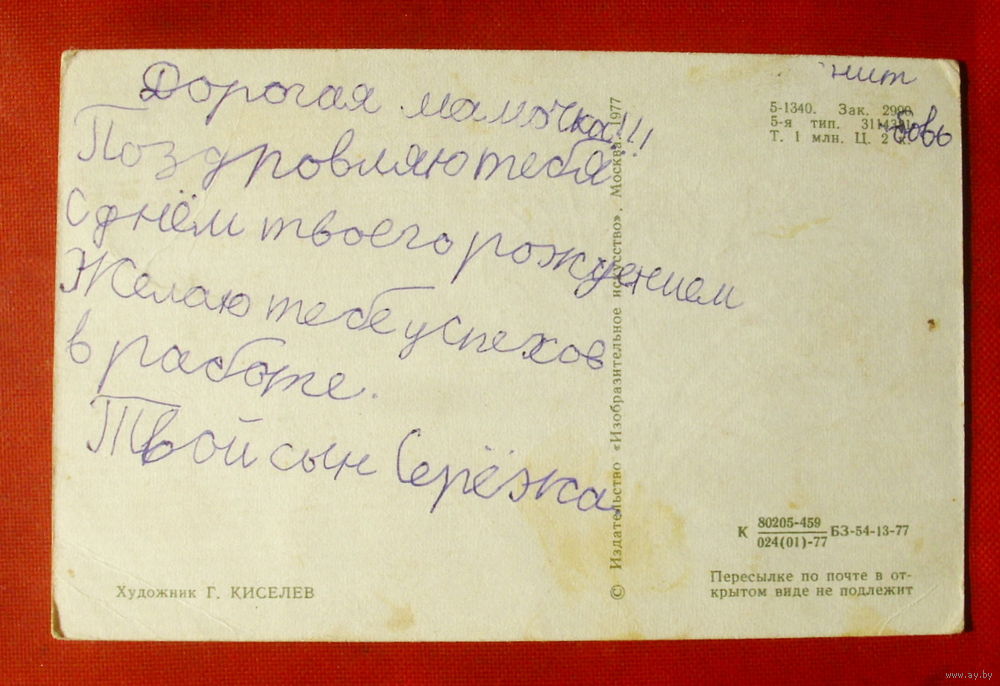 Дорогая мамочка!!!
Поздровляю тебя
С днём твоего рождением
Желаю тебе успехов
в работе.
Твой сын Серёжка.
нит
бовь
5-1340. Зак.
5-я тип.
Т. 1 млн. Ц. 2
© Издательство «Изобразительное искусство». Москва. 1977
К 80205-459 БЗ-54-13-77
024(01)-77
Пересылке по почте в от-
крытом виде не подлежит
Художник Г. КИСЕЛЕВ
www.ay.by